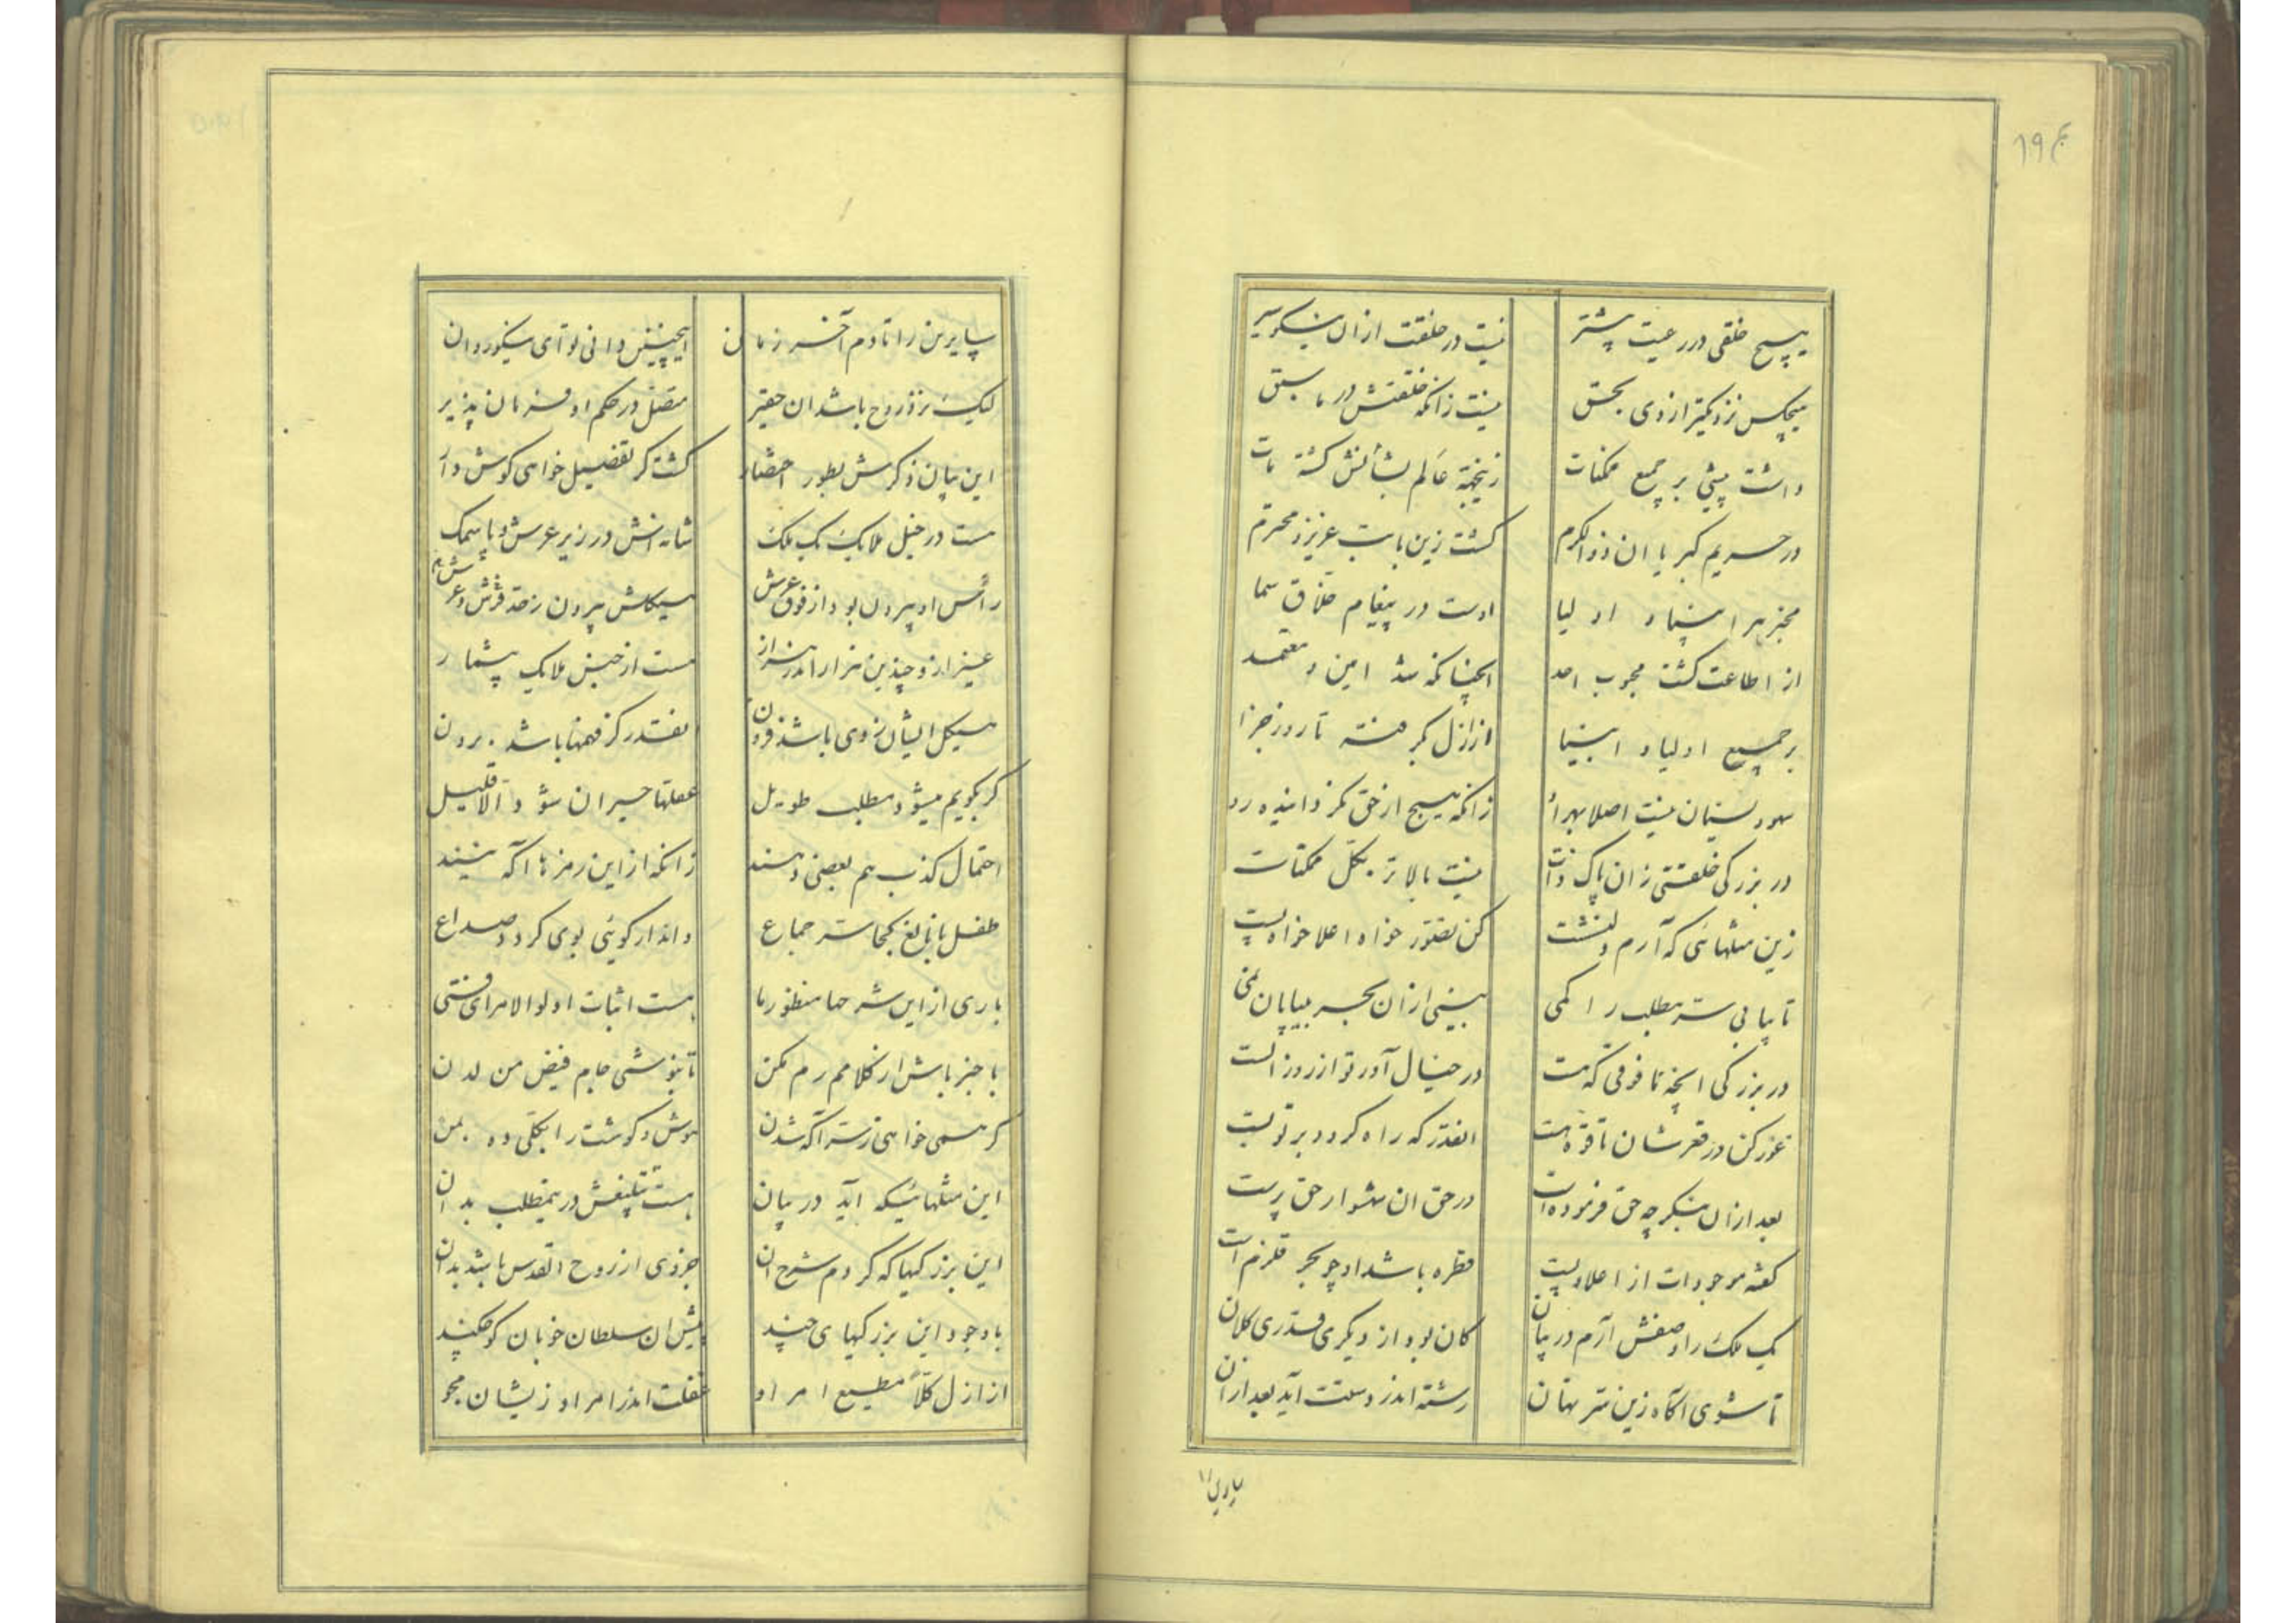 هیچ خلقی در رعیت پیشتر نیست در خلقت از ان نیکو سیر
هیچکس نزدیکتر از وی بحق نیست زانکه خلقتش در ما سبق
داشت پیشی بر جمیع ممکنات زینجهة عالم بشأنش کشته مات
در حریم کبریا ان ذو الکرم کشت زین بابت عزیز و محترم
مخبر هر انبیاء و اولیا اوست در پیغام خلاق سما
از اطاعت کشت محبوب احد انچنانکه شد امین و معتمد
بر جمیع اولیاء و انبیا از ازل بکرفته تا روز جزا
سهو و نسیان نیست اصلا بهر أو زانکه هیچ از حق نکرداینده رو
در بزرکی خلقتی زان پاک ذات نیست بالاتر بکل ممکنات
زین مثلهائی که آرم دلنشست کن تصور خواه اعلا خواه پست
تا بیابی ستر مطلب را کمی بینی از ان بحر بیپایان نمی
در بزرکی انچه ما فوقی که هست در خیال آور تو از روز الست
غور کن در قعرشان تا قوه هست انقدر که راه کردد بر تو بست
بعد از ان بنکر چه حق فرموده است در حق ان شهسوار حق پرست
کفته موجودات از اعلا و پست قطره باشد او چو بحر قلزم است
یک ملک را وصفش آرم در بیان کان بود از دیکری قدری کلان
تا شوی آکاه زین ستر نهان رشته اندر دستت آید بعد از ان
سایرین را تا دم آخر زمان اینچنین دانی تو ای نیکو روان
لیک نزد روح باشد ان حقیر متصل در حکم او فرمان پذیر
این بیان ذکرش بطور اختصار کشت کر تفصیل خواهی کوش دار
هست در خیل ملایک یک ملک شانه‌اش در زیر عرش و پا سمک
رأس او بیرون بود از فوق عرش هیکلش بیرون ز حد فرش و عرش
غیر از و چندین هزار اندر هزار هست از جنس ملایک بیشمار
هیکل ایشان ز وی باشد فزون انقدر کز فهمها باشد برون
کر بکویم میشود مطلب طویل عقلها حیران شود الا قلیل
احتمال کذب هم بعضی دهند زانکه از این رمزها اکه نیند
طفل نابالغ کجا ستر جماع داند ار کوئی بوی کردد صداع
باری از این شرحها منظور ما هست اثبات اولو الامر ای فتی
با خبر باش از کلامم رم مکن تا بنوشی جام فیض من لدن
کر همی خواهی ز ستر اکه شدن هوش و کوشت را بکلی ده بمن
این مثلهائیکه آید در بیان هست تبلیغش در یمطلب بدان
این بزرکیها که کردم شرح ان جزوی از روح القدس باشد بدان
با وجود این بزرکیهای چند پیش ان سلطان خوبان کوچکند
از ازل کلاً مطیع امر او غفلت اندر امر او زیشان مجو